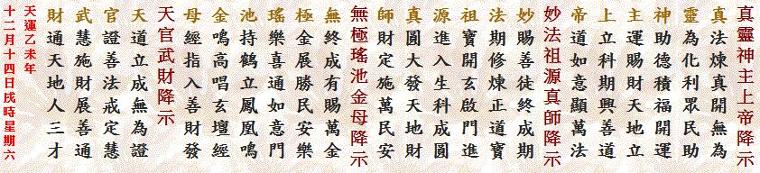 真靈神主上帝降示
真法煉真開無為
靈為化利眾民助
神助德積福開運
主運賜財天地立
上立科期興善道
帝道如意顯萬法
妙法祖源真師降示
妙賜善徒終成期
法期修煉正道寶
祖寶開玄啟門進
源進入生科成圓
真圓大發天地財
師財定施萬民安
無極瑤池金母降示
無終成有賜萬金
極金展勝民安樂
瑤樂喜通如意門
池持鶴立鳳凰鳴
金鳴高唱玄壇經
母經指入善財發
天官武財降示
天道立成無為證
官證善法戒定慧
武慧施財展善通
財通天地人三才
天運乙未年
十二月十四日戌時星期六